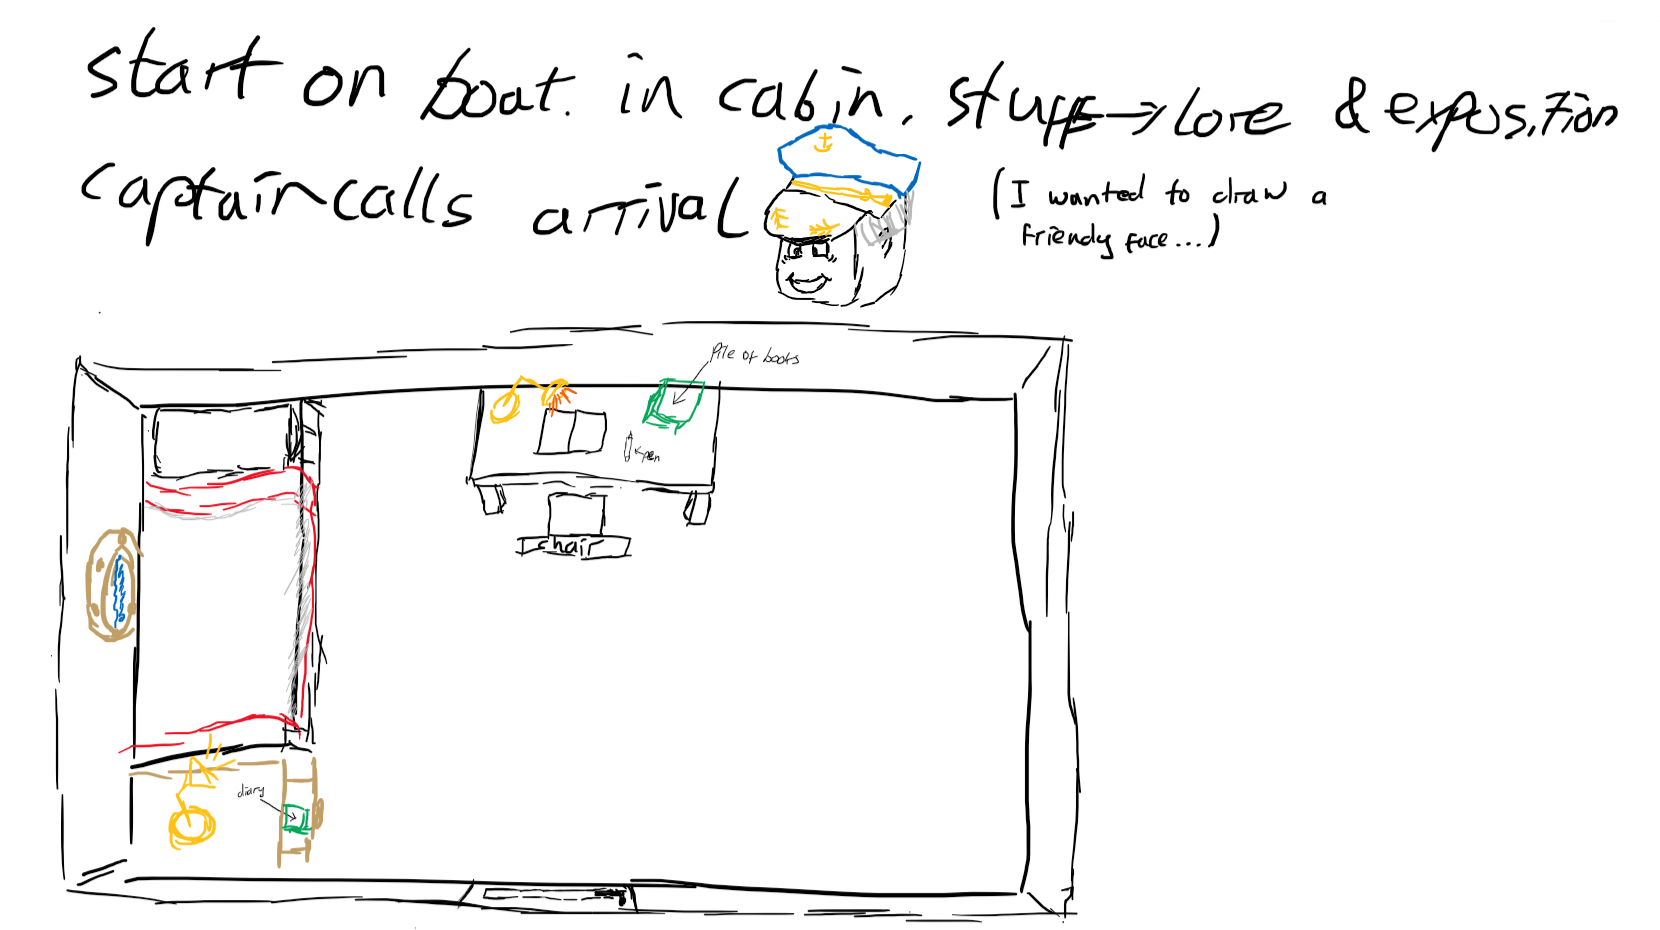 start on boat. in cabin. stuff → Lore & exposition
captain calls arrival
(I wanted to draw a
friendly face...)
Pile of books
pen
chair
diary